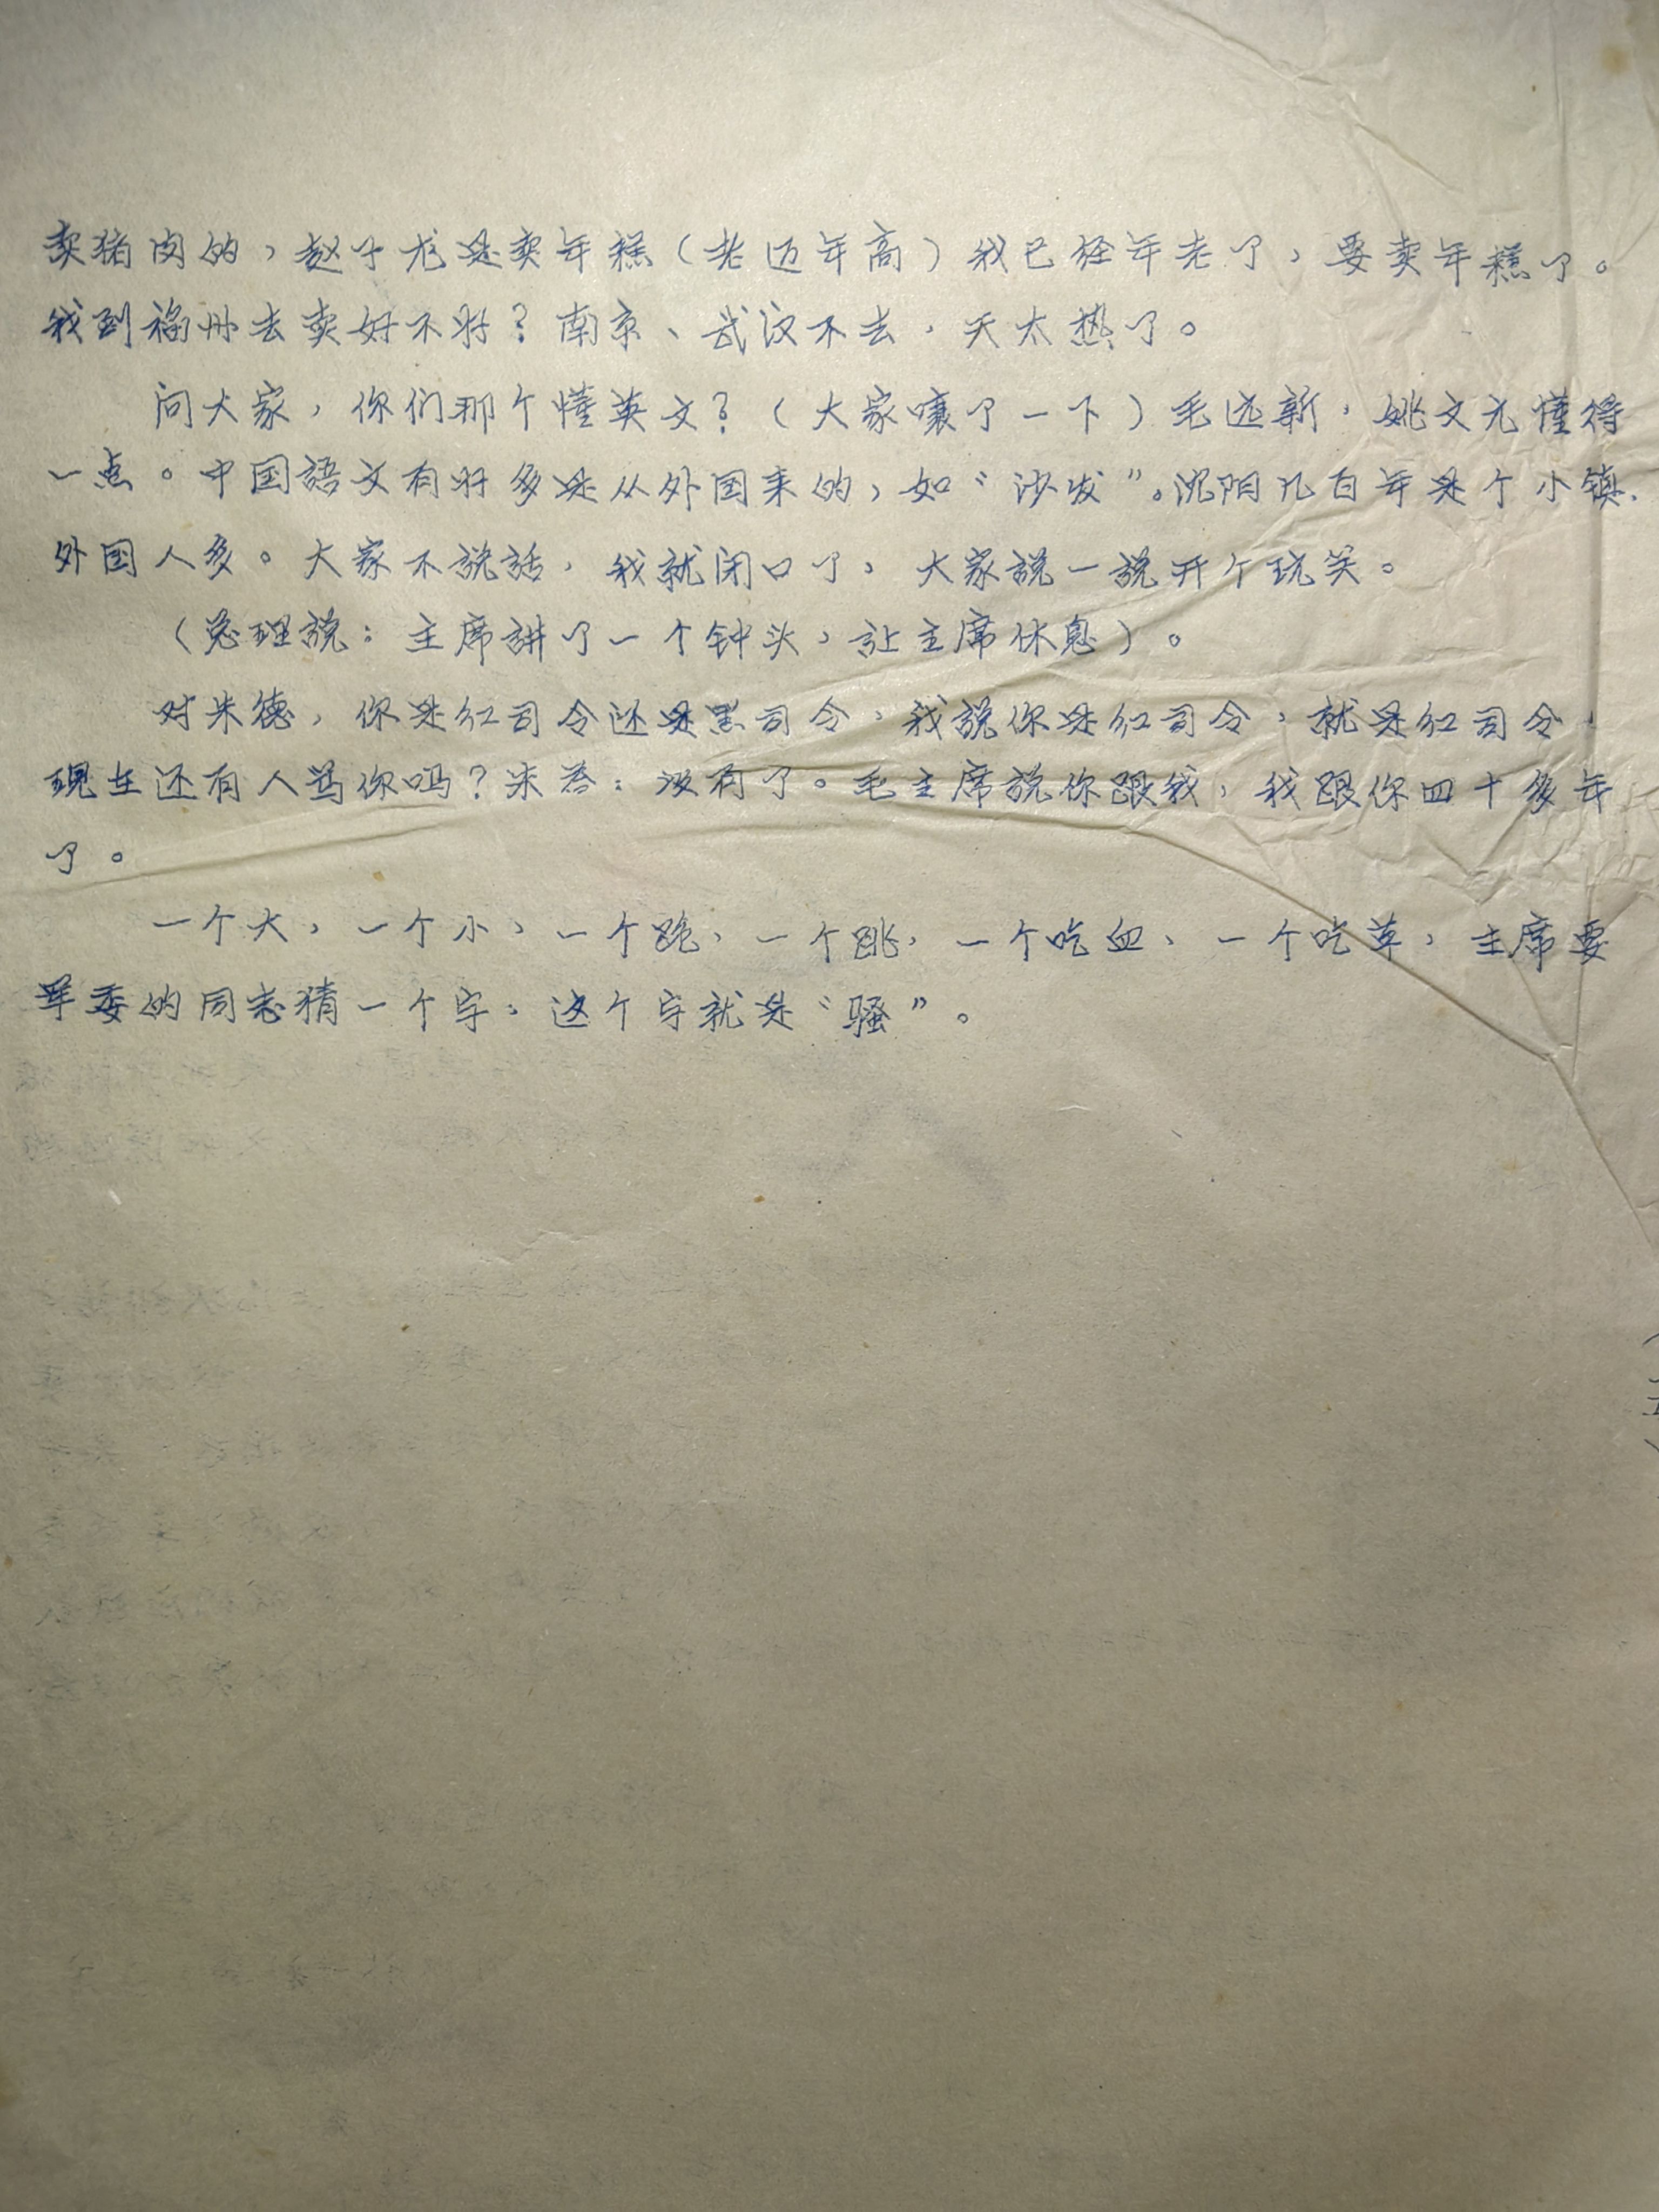 卖猪肉的，赵子龙是卖年糕（老迈年高）我已经年老了，要卖年糕了。
我到福州去卖好不好？南京、武汉不去，天太热了。
问大家，你们那个懂英文？（大家嚷了一下）毛远新，姚文元懂得
一点。中国語文有好多是从外国来的，如“沙发”。沈阳几百年是个小镇，
外国人多。大家不説話，我就闭口了，大家説一説开个玩笑。
（总理説：主席讲了一个钟头，让主席休息）。
对朱德，你是红司令还是黑司令，我説你是红司令，就是红司令，
现在还有人骂你吗？朱答：没有了。毛主席説你跟我，我跟你四十多年
了。
一个大，一个小，一个跑，一个跳，一个吃血，一个吃草，主席要
军委的同志猜一个字，这个字就是“骚”。